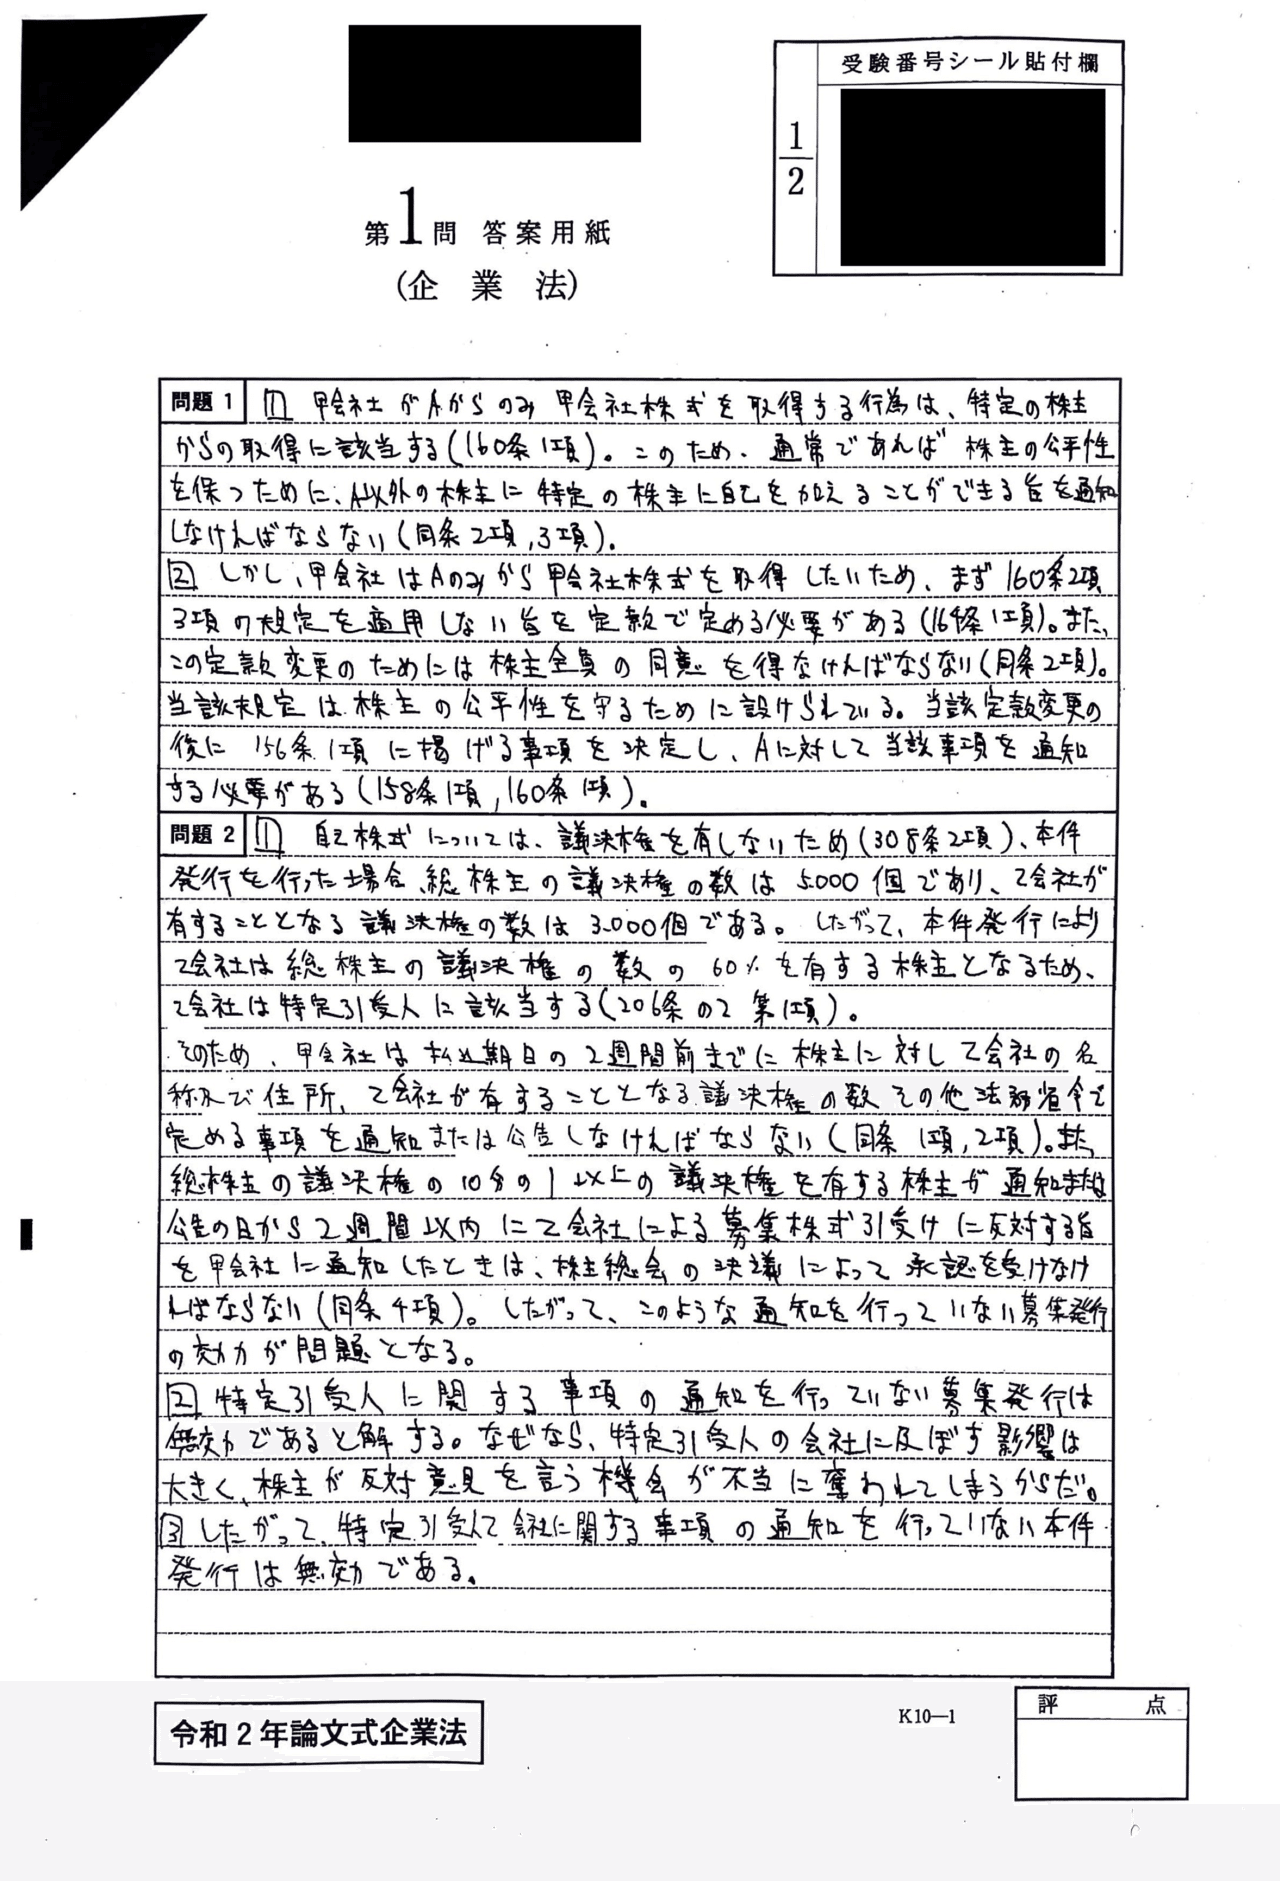 受験番号シール貼付欄
1
2
第1問 答案用紙
(企業法)
問題1 1 甲会社がAからのみ甲会社株式を取得する行為は、特定の株主
からの取得に該当する(160条1項)。このため、通常であれば株主の公平性
を保つために、A以外の株主に特定の株主に自己を加えることができる旨を通知
しなければならない(同条2項,3項)。
2 しかし、甲会社はAのみから甲会社株式を取得したいため、まず160条2項
3項の規定を適用しない旨を定款で定める必要がある(164条1項)。また、
この定款変更のためには株主全員の同意を得なければならない(同条2項)。
当該規定は株主の公平性を守るために設けられている。当該定款変更の
後に156条1項に掲げる事項を決定し、Aに対して当該事項を通知
する必要がある(158条1項,160条1項)。
問題2 1 自己株式については、議決権を有しないため(308条2項)、本件
発行を行った場合、総株主の議決権の数は5.000個であり、乙会社が
有することとなる議決権の数は3.000個である。したがって、本件発行により
乙会社は総株主の議決権の数の60%を有する株主となるため、
乙会社は特定引受人に該当する(206条の2第1項)。
そのため、甲会社は払込期日の2週間前までに株主に対して乙会社の名
称及び住所、乙会社が有することとなる議決権の数その他法務省令で
定める事項を通知または公告しなければならない(同条1項,2項)。また、
総株主の議決権の10分の1以上の議決権を有する株主が通知または
公告の日から2週間以内に乙会社による募集株式引受けに反対する旨
を甲会社に通知したときは、株主総会の決議によって承認を受けなけ
ればならない(同条4項)。したがって、このような通知を行っていない募集発行
の効力が問題となる。
2 特定引受人に関する事項の通知を行っていない募集発行は
無効であると解する。なぜなら、特定引受人の会社に及ぼす影響は
大きく、株主が反対意見を言う機会が不当に奪われてしまうからだ。
3 したがって、特定引受人乙会社に関する事項の通知を行っていない本件
発行は無効である。
令和2年論文式企業法
K10—1
評 点